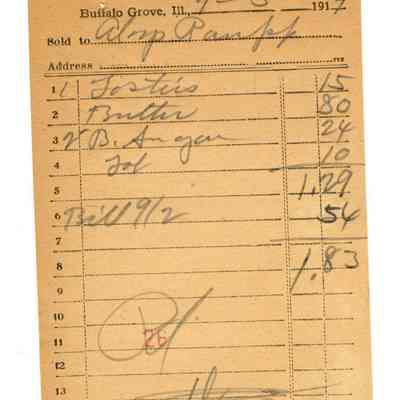 Buffalo Grove, Ill., 9-3 1917
Sold to Alvp Raupp
Address
1 1 Tosties 15
2 Butter 80
3 2 B. Sugar 24
4 10
5 1.29
6 Bill 9/2 54
7
8 1.83
9
10
11 26
12
13